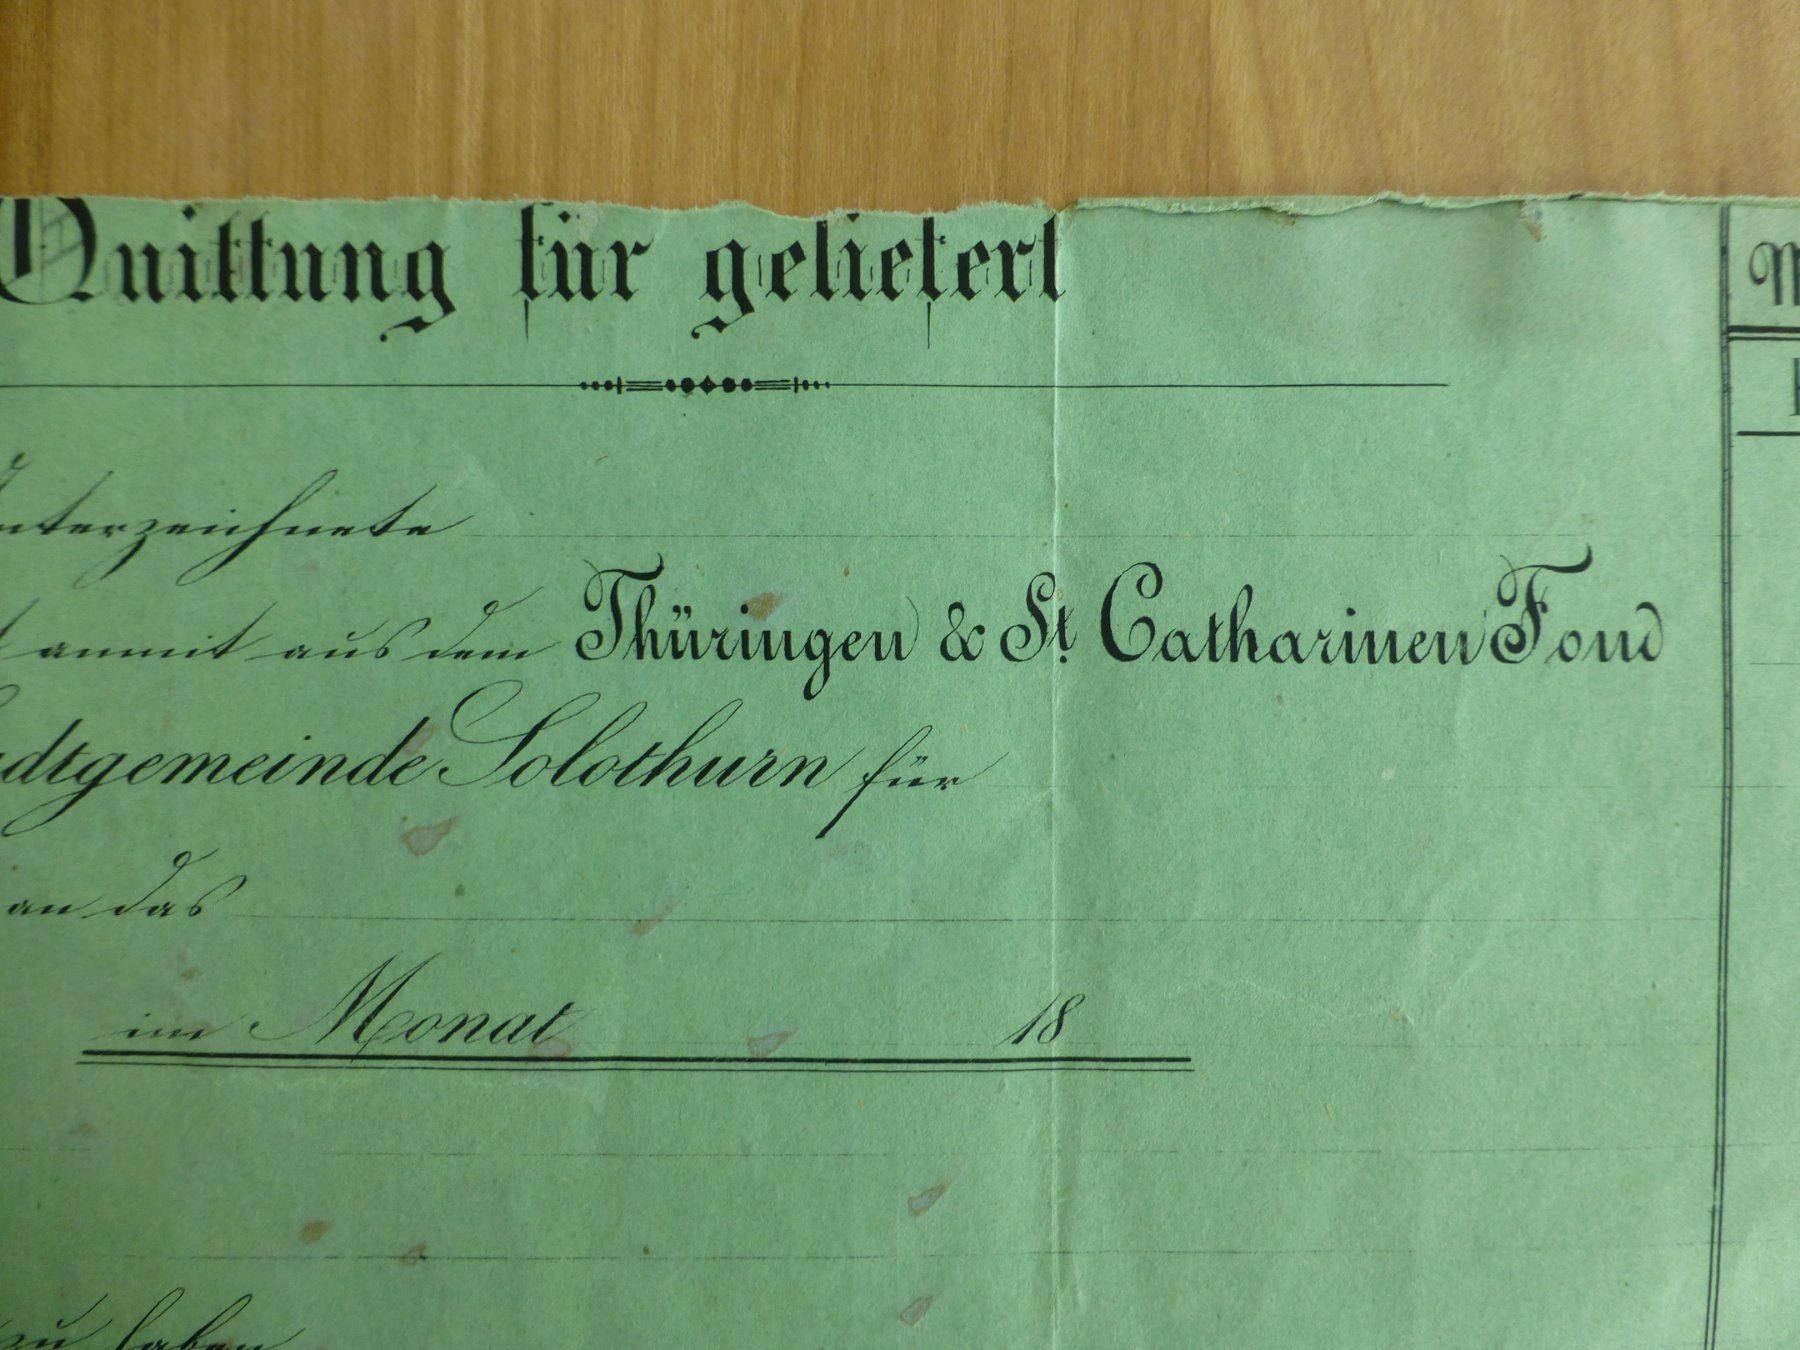 Quittung für geliefert
Unterzeichnete
anmit aus dem Thüringen & St. Catharinen Fond
adtgemeinde Solothurn für
an das
im Monat 18
zu haben
M